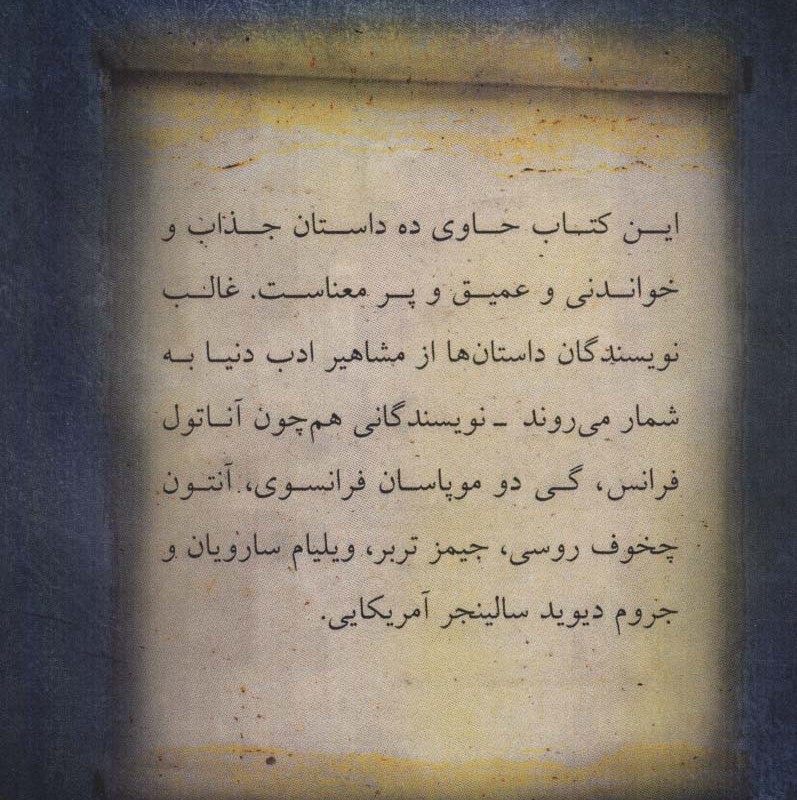 این کتاب حاوی ده داستان جذاب و
خواندنی و عمیق و پر معناست. غالب
نویسندگان داستان‌ها از مشاهیر ادب دنیا به
شمار می‌روند ـ نویسندگانی هم‌چون آناتول
فرانس، گی دو موپاسان فرانسوی، آنتون
چخوف روسی، جیمز تربر، ویلیام سارویان و
جروم دیوید سالینجر آمریکایی.